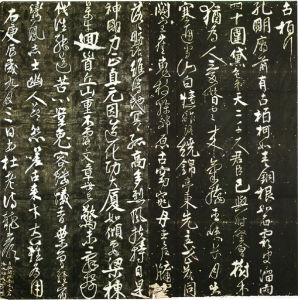 古栢行
孔明廟前有古栢柯如青銅根如石霜皮溜雨
四十圍黛色參天二千尺君臣已與時際會樹木
猶為人愛惜雲來氣接巫峽長月出
寒通雪山白憶昨路繞錦亭東先主武侯同
閟宮崔嵬枝幹郊原古窈窕丹青戶牖空
落落盤踞雖得地冥冥孤高多烈風扶持自是
神明力正直元因造化功大廈如傾要梁棟
萬牛迴首丘山重不露文章世已驚未辭剪
伐誰能送苦心豈免容螻蟻香葉終經宿
鸞鳳志士幽人勿怨嗟古來材大難為用
右庚辰歲九月三日書杜老詩龍巖